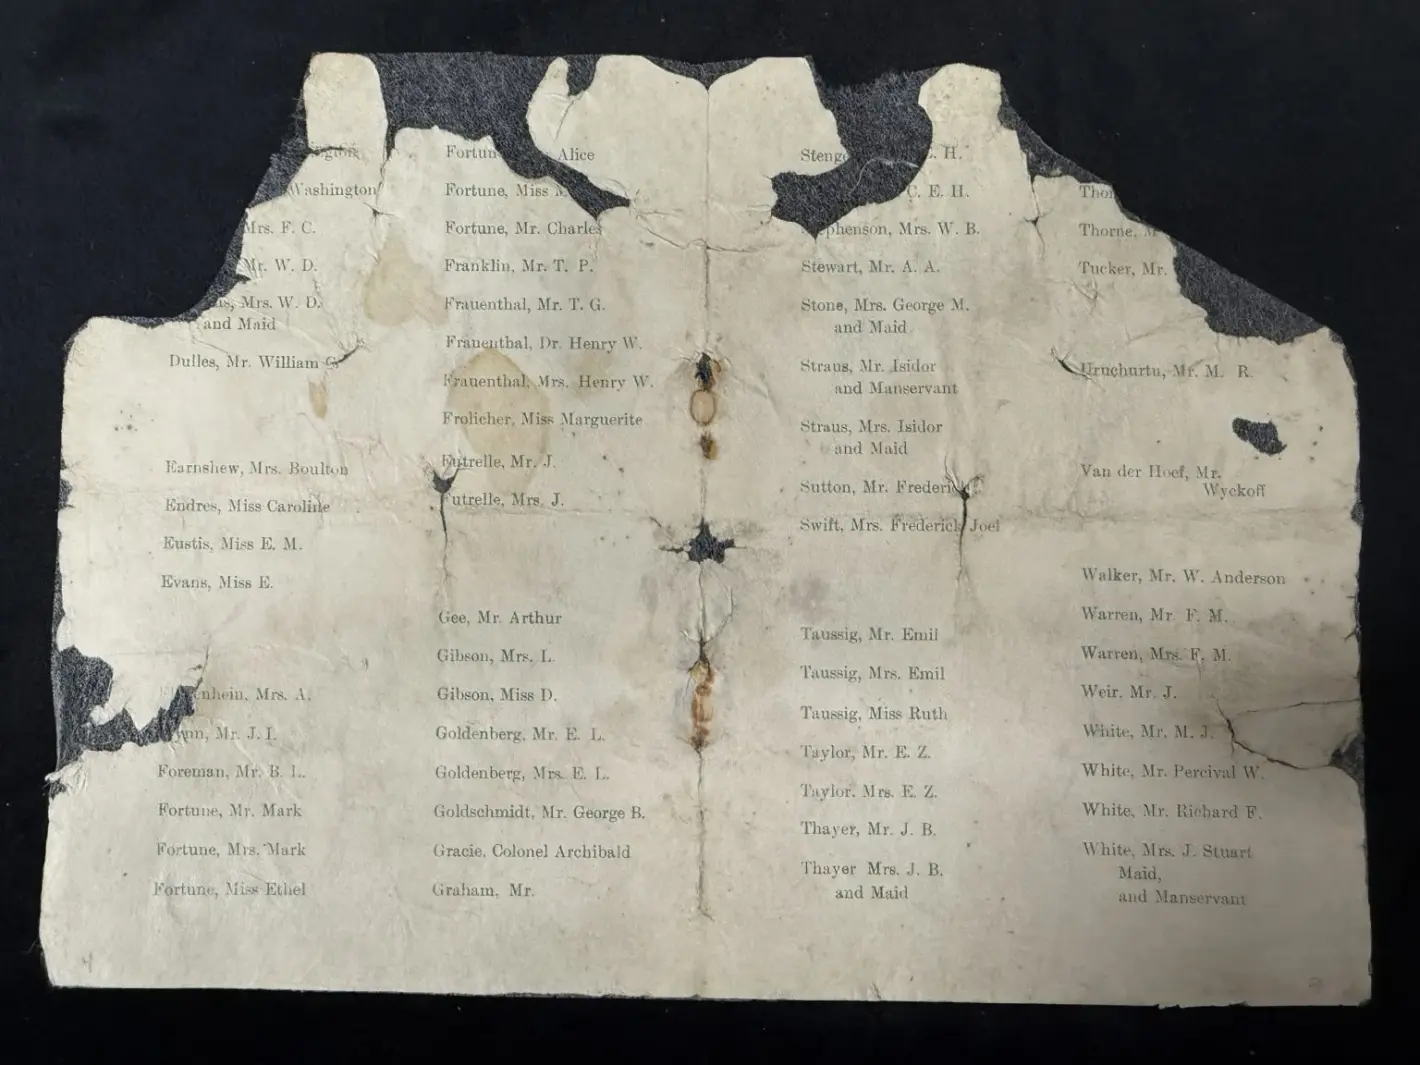 Washington
Mrs. F. C.
Mr. W. D.
Mrs. W. D.
and Maid
Dulles, Mr. William C.
Earnshew, Mrs. Boulton
Endres, Miss Caroline
Eustis, Miss E. M.
Evans, Miss E.
Mrs. A.
Mr. J. I.
Foreman, Mr. B. L.
Fortune, Mr. Mark
Fortune, Mrs. Mark
Fortune, Miss Ethel
Alice
Fortune, Miss
Fortune, Mr. Charles
Franklin, Mr. T. P.
Frauenthal, Mr. T. G.
Frauenthal, Dr. Henry W.
Frauenthal, Mrs. Henry W.
Frolicher, Miss Marguerite
Futrelle, Mr. J.
Futrelle, Mrs. J.
Gee, Mr. Arthur
Gibson, Mrs. L.
Gibson, Miss D.
Goldenberg, Mr. E. L.
Goldenberg, Mrs. E. L.
Goldschmidt, Mr. George B.
Gracie, Colonel Archibald
Graham, Mr.
H.
C. E. H.
Mrs. W. B.
Stewart, Mr. A. A.
Stone, Mrs. George M.
and Maid
Straus, Mr. Isidor
and Manservant
Straus, Mrs. Isidor
and Maid
Sutton, Mr. Frederick
Swift, Mrs. Frederick Joel
Taussig, Mr. Emil
Taussig, Mrs. Emil
Taussig, Miss Ruth
Taylor, Mr. E. Z.
Taylor. Mrs. E. Z.
Thayer, Mr. J. B.
Thayer Mrs. J. B.
and Maid
Thorne,
Tucker, Mr.
Uruchurtu, Mr. M. R.
Van der Hoef, Mr.
Wyckoff
Walker, Mr. W. Anderson
Warren, Mr. F. M.
Warren, Mrs. F. M.
Weir. Mr. J.
White, Mr. M. J.
White, Mr. Percival W.
White, Mr. Richard F.
White, Mrs. J. Stuart
Maid,
and Manservant